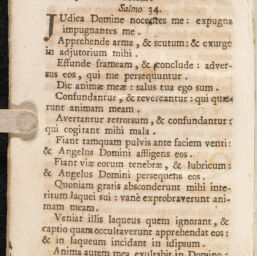 Salmo 34.
JUdica Domine nocentes me: expugna
impugnantes me.
Apprehende arma, & scutum: & exurge
in adjutorium mihi.
Effunde frameam, & conclude: adver-
sus eos, qui me persequuntur.
Dic animæ meæ: salus tua ego sum.
Confundantur, & revereantur: qui quæ-
runt animam meam.
Avertantur retrorsum, & confundantur:
qui cogitant mihi mala.
Fiant tamquam pulvis ante faciem venti:
& Angelus Domini affligens eos.
Fiant viæ eorum tenebræ, & lubricum:
& Angelus Domini persequens eos.
Quoniam gratis absconderunt mihi inte-
ritum laquei sui: vanè exprobraverunt ani-
mam meam.
Veniat illis laqueus quem ignorant, &
captio quam occultaverunt apprehendat eos:
& in laqueum incidant in idipsum.
Anima autem mea exultabit in Domino: